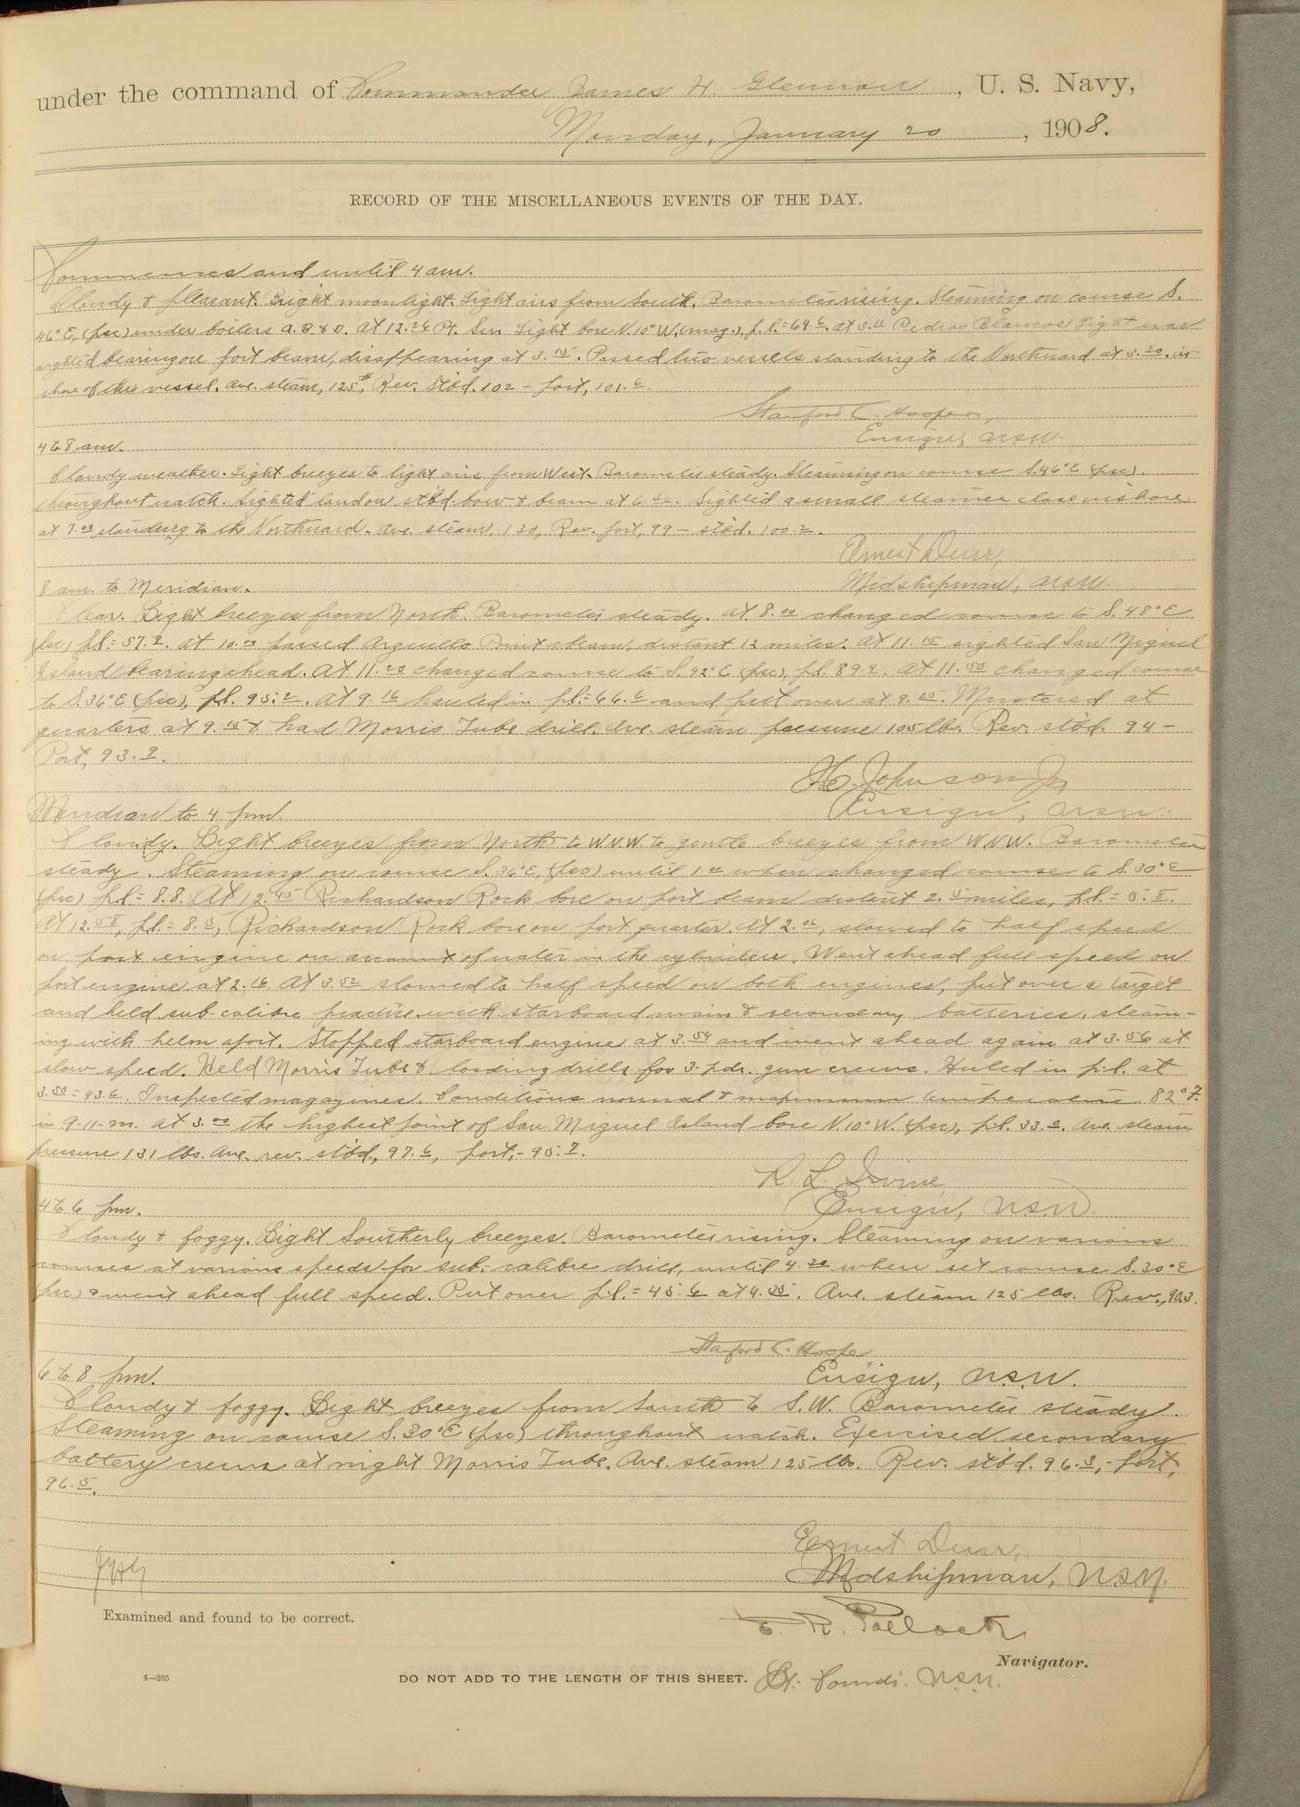 under the command of Commander James H. Glennon, U. S. Navy,
Monday, January 20, 1908.
RECORD OF THE MISCELLANEOUS EVENTS OF THE DAY.
Commences and until 4 am.
Cloudy & pleasant. Bright moonlight. Light airs from South. Barometer rising. Steaming on course S.
46° E, (psc) under boilers A. B & D. At 12.26 Pt. Sur Light bore N. 10° W. (mag.), p.l. = 69.6. At 3.11 Pedras Blancas Light was
sighted bearing on port beam, disappearing at 3.15. Passed two vessels standing to the Northward at 3.20. in
shore of this vessel. Ave. steam, 125#, Rev. Stbd. 102 - port, 101.6.
Stanford C. Hooper,
Ensign, U.S.N.
4 to 8 am.
Cloudy weather. Light breezes to light airs from West. Barometer steady. Steaming on course S. 46° E (psc).
throughout watch. Sighted land on stbd. bow & beam at 6. Sighted a small steamer close inshore
at 7.00 standing to the Northward. Ave. steam, 130, Rev. port, 99 - stbd. 100.2.
Ernest Durr,
Midshipman, U.S.N.
8 am. to Meridian.
Clear. Light breezes from North. Barometer steady. At 8.00 changed course to S. 48° E
(psc) p.l. = 57.2. At 10.00 passed Arguello Point abeam, distant 12 miles. At 11.15 sighted San Miguel
Island bearing ahead. At 11.20 changed course to S. 42° E (psc), p.l. 89.2. At 11.50 changed course
to S. 36° E (psc), p.l. 95.2. At 9.16 hauled in p.l. = 66.6 and put over at 9.25. Mustered at
quarters at 9.15 & had Morris Tube drill. Ave. steam pressure 105 lbs. Rev. stbd. 94 -
Port, 93.9.
H. Johnson Jr.
Ensign, U.S.N.
Meridian to 4 pm.
Cloudy. Light breezes from North to W.N.W. to gentle breezes from W.N.W. Barometer
steady. Steaming on course S. 36° E, (psc) until 1.00 when changed course to S. 30° E
(psc) p.l. = 8.8. At 12.45 Richardson Rock bore on port beam distant 2.5 miles, p.l. = 5.5.
At 12.58, p.l. = 8.5, Richardson Rock bore on port quarter. At 2., slowed to half speed
on port engine on account of water in the cylinders. Went ahead full speed on
port engine at 2.16. At 3.52 slowed to half speed on both engines, put over a target
and held sub-calibre practice with starboard main & secondary batteries, steam-
ing with helm aport. Stopped starboard engine at 3.54 and went ahead again at 3.56 at
slow speed. Held Morris Tube & loading drills for 3-pdr. gun crews. Hauled in p.l. at
3.50 = 43.6. Inspected magazines. Conditions normal & maximum temperature 82° F.
in 9-11-M. At 3.00 the highest point of San Miguel Island bore N. 10° W. (psc), p.l. 33.. Ave. steam
pressure 131 lbs. Ave. rev. stbd, 97.6, port, - 95.7.
R. L. Irvine,
Ensign, U.S.N.
4 to 6 pm.
Cloudy & foggy. Light Southerly breezes. Barometer rising. Steaming on various
courses at various speeds for sub-calibre drill, until 4.30 when set course S. 30° E
(psc) & went ahead full speed. Put over p.l. = 45.6 at 4.35. Ave. steam 125 lbs. Rev., 90.3.
Stanford C. Hooper
Ensign, U.S.N.
6 to 8 pm.
Cloudy & foggy. Light breezes from South to S.W. Barometer steady.
Steaming on course S. 30° E (psc) throughout watch. Exercised secondary
battery crews at night Morris Tube. Ave. steam 125 lbs. Rev. stbd. 96.3, - port,
96.5.
Ernest Durr,
Midshipman, U.S.N.
JHG
Examined and found to be correct.
E. R. Pollock
Navigator.
4—265
DO NOT ADD TO THE LENGTH OF THIS SHEET.
Lt. Comdr. U.S.N.